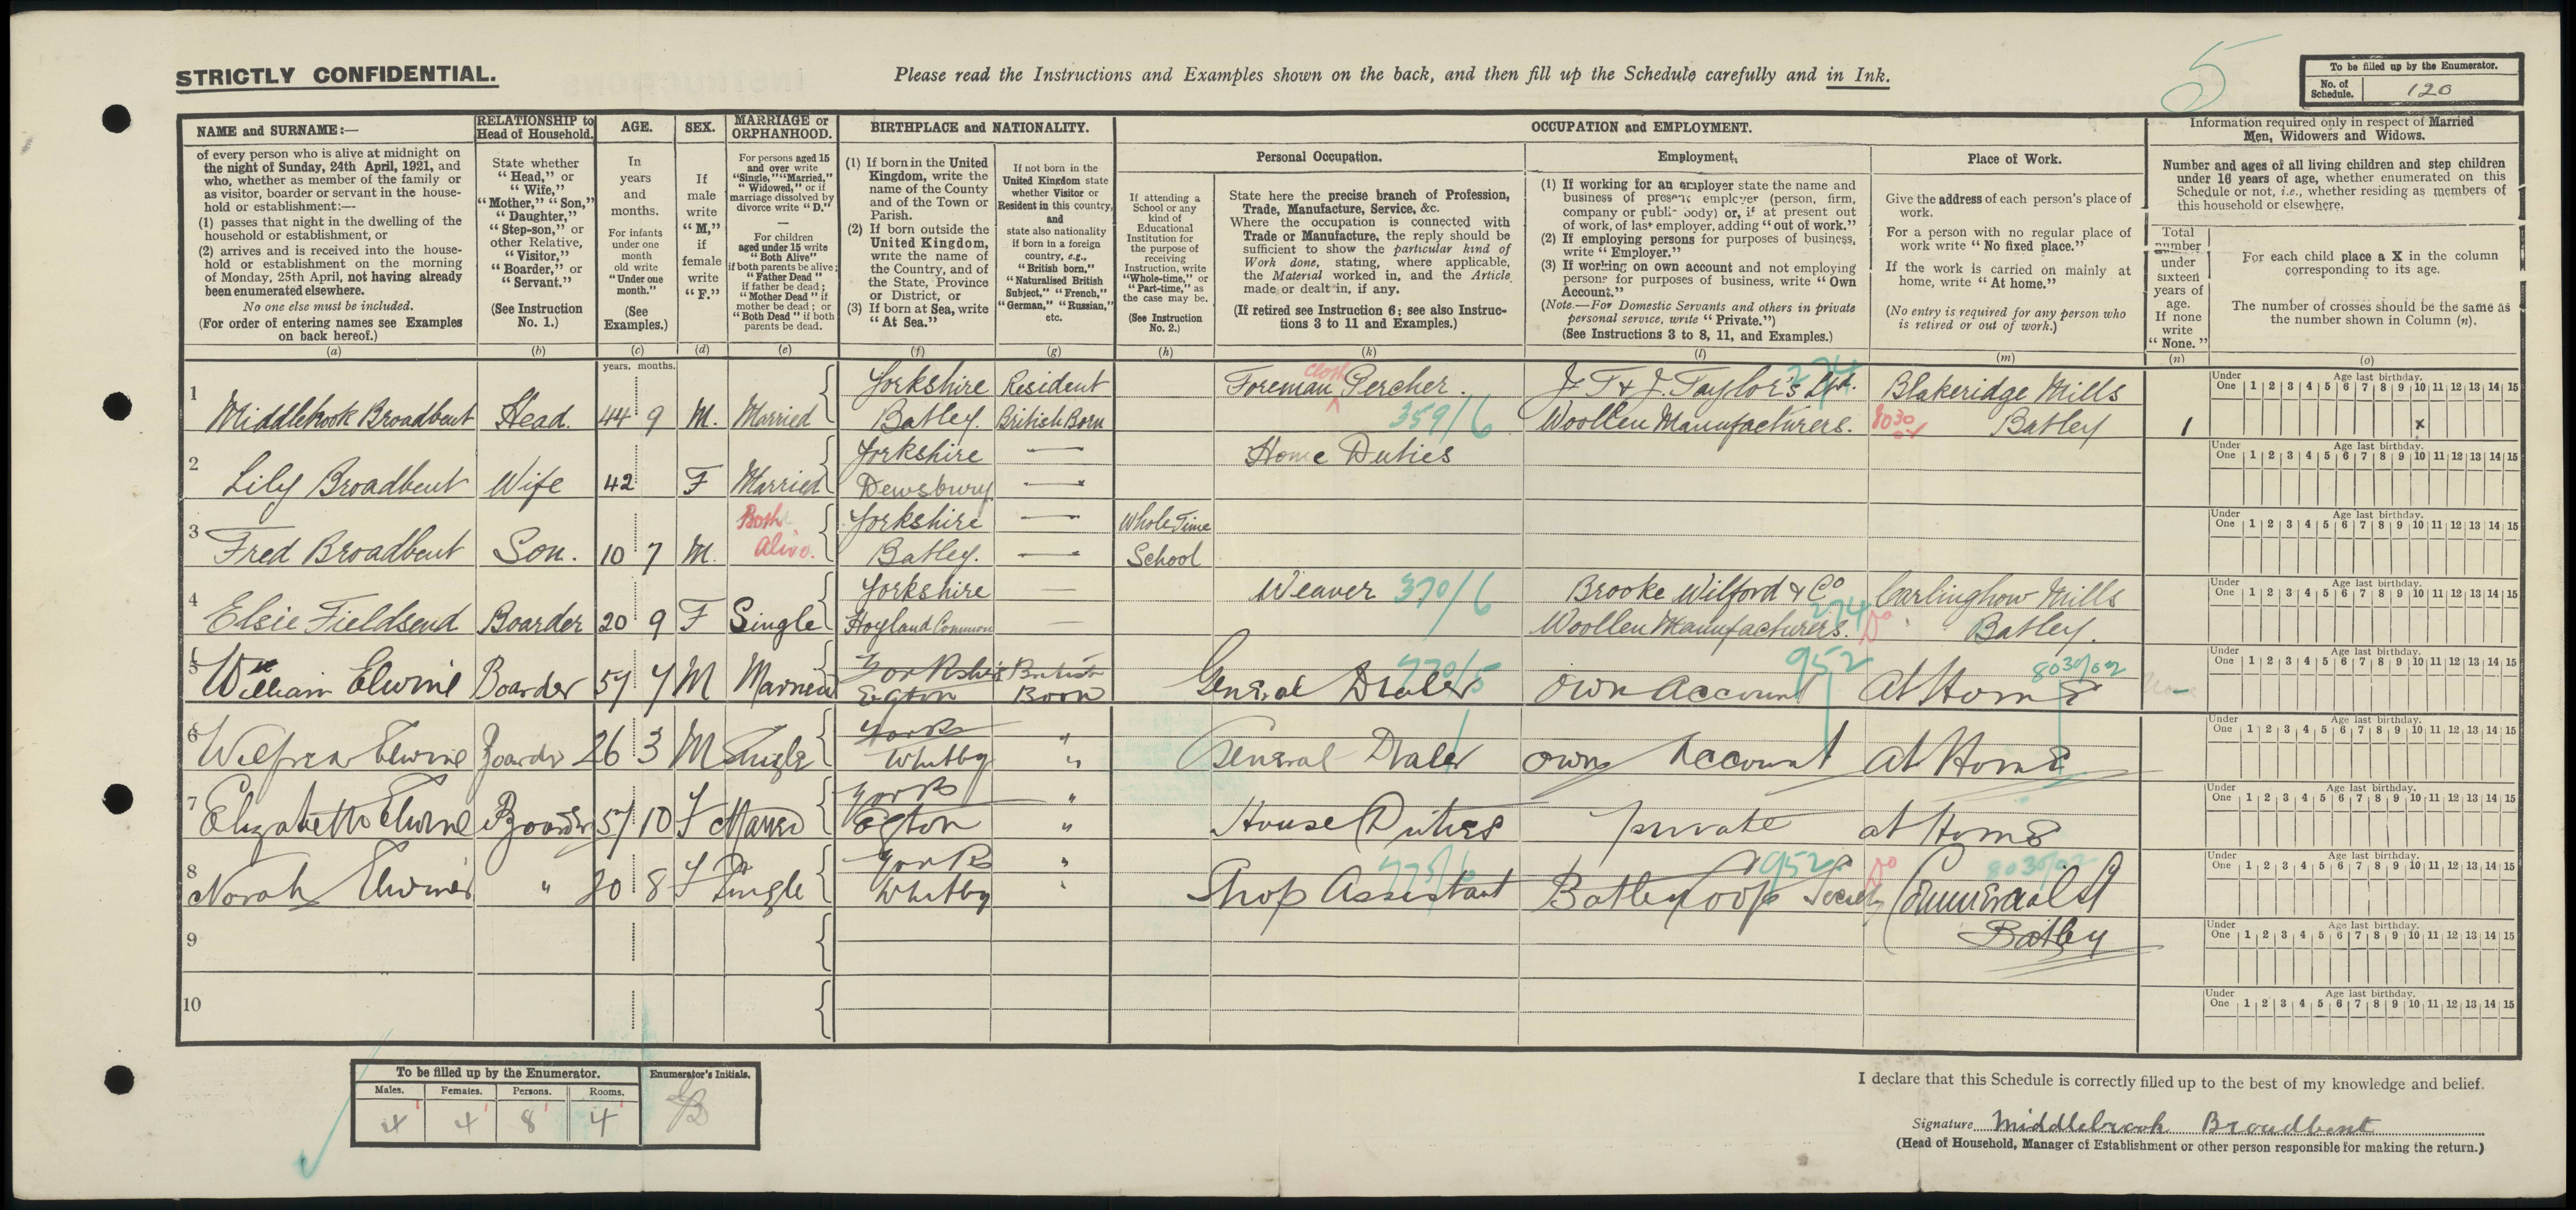 STRICTLY CONFIDENTIAL.
Please read the Instructions and Examples shown on the back, and then fill up the Schedule carefully and in Ink.
5
To be filled up by the Enumerator.
No. of Schedule. 120
NAME and SURNAME:—
of every person who is alive at midnight on
the night of Sunday, 24th April, 1921, and
who, whether as member of the family or
as visitor, boarder or servant in the house-
hold or establishment:—
(1) passes that night in the dwelling of the
household or establishment, or
(2) arrives and is received into the house-
hold or establishment on the morning
of Monday, 25th April, not having already
been enumerated elsewhere.
No one else must be included.
(For order of entering names see Examples
on back hereof.)
(a)
RELATIONSHIP to
Head of Household.
State whether
"Head," or
"Wife,"
"Mother," "Son,"
"Daughter,"
"Step-son," or
other Relative,
"Visitor,"
"Boarder," or
"Servant."
(See Instruction
No. 1.)
(b)
AGE.
In
years
and
months.
For infants
under one
month
old write
"Under one
month."
(See
Examples.)
(c)
SEX.
If
male
write
"M,"
if
female
write
"F."
(d)
MARRIAGE or
ORPHANHOOD.
For persons aged 15
and over write
"Single," "Married,"
"Widowed," or if
marriage dissolved by
divorce write "D."
—
For children
aged under 15 write
"Both Alive"
if both parents be alive;
"Father Dead"
if father be dead;
"Mother Dead" if
mother be dead; or
"Both Dead" if both
parents be dead.
(e)
BIRTHPLACE and NATIONALITY.
(1) If born in the United
Kingdom, write the
name of the County
and of the Town or
Parish.
(2) If born outside the
United Kingdom,
write the name of
the Country, and of
the State, Province
or District, or
(3) If born at Sea, write
"At Sea."
(f)
If not born in the
United Kingdom state
whether Visitor or
Resident in this country,
and
state also nationality
if born in a foreign
country, e.g.,
"British born,"
"Naturalised British
Subject," "French,"
"German," "Russian,"
etc.
(g)
OCCUPATION and EMPLOYMENT.
Personal Occupation.
If attending a
School or any
kind of
Educational
Institution for
the purpose of
receiving
Instruction, write
"Whole-time," or
"Part-time," as
the case may be.
(See Instruction
No. 2.)
(h)
State here the precise branch of Profession,
Trade, Manufacture, Service, &c.
Where the occupation is connected with
Trade or Manufacture, the reply should be
sufficient to show the particular kind of
Work done, stating, where applicable,
the Material worked in, and the Article
made or dealt in, if any.
(If retired see Instruction 6; see also Instruc-
tions 3 to 11 and Examples.)
(k)
Employment.
(1) If working for an employer state the name and
business of present employer (person, firm,
company or public body) or, if at present out
of work, of last employer, adding "out of work."
(2) If employing persons for purposes of business,
write "Employer."
(3) If working on own account and not employing
persons for purposes of business, write "Own
Account."
(Note.—For Domestic Servants and others in private
personal service, write "Private.")
(See Instructions 3 to 8, 11, and Examples.)
(l)
Place of Work.
Give the address of each person's place of
work.
For a person with no regular place of
work write "No fixed place."
If the work is carried on mainly at
home, write "At home."
(No entry is required for any person who
is retired or out of work.)
(m)
Information required only in respect of Married
Men, Widowers and Widows.
Number and ages of all living children and step children
under 16 years of age, whether enumerated on this
Schedule or not, i.e., whether residing as members of
this household or elsewhere.
Total
number
under
sixteen
years of
age.
If none
write
"None."
(n)
For each child place a X in the column
corresponding to its age.
The number of crosses should be the same as
the number shown in Column (n).
(o)
years. months.
Under One Age last birthday. 1 2 3 4 5 6 7 8 9 10 11 12 13 14 15
1 Middlebrook Broadbent Head. 44 9 M. Married Yorkshire Batley. Resident British Born Foreman Cloth Percher. 359/6 J T & J. Taylor's Ltd. 274 Woollen Manufacturers. Blakeridge Mills 8030 Batley 1 x
Under One Age last birthday. 1 2 3 4 5 6 7 8 9 10 11 12 13 14 15
2 Lily Broadbent Wife 42 F Married Yorkshire Dewsbury Home Duties
Under One Age last birthday. 1 2 3 4 5 6 7 8 9 10 11 12 13 14 15
3 Fred Broadbent Son. 10 7 M. Both Alive. Yorkshire Batley. Whole Time School
Under One Age last birthday. 1 2 3 4 5 6 7 8 9 10 11 12 13 14 15
4 Elsie Fieldsend Boarder 20 9 F Single Yorkshire Hoyland Common Weaver 370/6 Brooke Wilford & Co 274 Woollen Manufacturers. Carlinghow Mills Do Batley.
Under One Age last birthday. 1 2 3 4 5 6 7 8 9 10 11 12 13 14 15
5 William Elwine Boarder 57 7 M Married Yorkshire Egton British Born General Dealer 770/5 own Account 952 At Home 8030/02 –
Under One Age last birthday. 1 2 3 4 5 6 7 8 9 10 11 12 13 14 15
6 Wilfred Elwine Boarder 26 3 M Single Yorks Whitby " " General Dealer own Account At Home
Under One Age last birthday. 1 2 3 4 5 6 7 8 9 10 11 12 13 14 15
7 Elizabeth Elwine Boarder 57 10 F Married Yorks Egton " " House Duties private at Home
Under One Age last birthday. 1 2 3 4 5 6 7 8 9 10 11 12 13 14 15
8 Norah Elwine " 20 8 F Single Yorks Whitby " " Shop Assistant 775/6 Batley Coop Society 952 Do Commercial St 8030/02
Batley
9
Under One Age last birthday. 1 2 3 4 5 6 7 8 9 10 11 12 13 14 15
10
Under One Age last birthday. 1 2 3 4 5 6 7 8 9 10 11 12 13 14 15
To be filled up by the Enumerator.
Males. Females. Persons. Rooms.
4 4 8 4
Enumerator's Initials.
I declare that this Schedule is correctly filled up to the best of my knowledge and belief.
Signature Middlebrook Broadbent
(Head of Household, Manager of Establishment or other person responsible for making the return.)